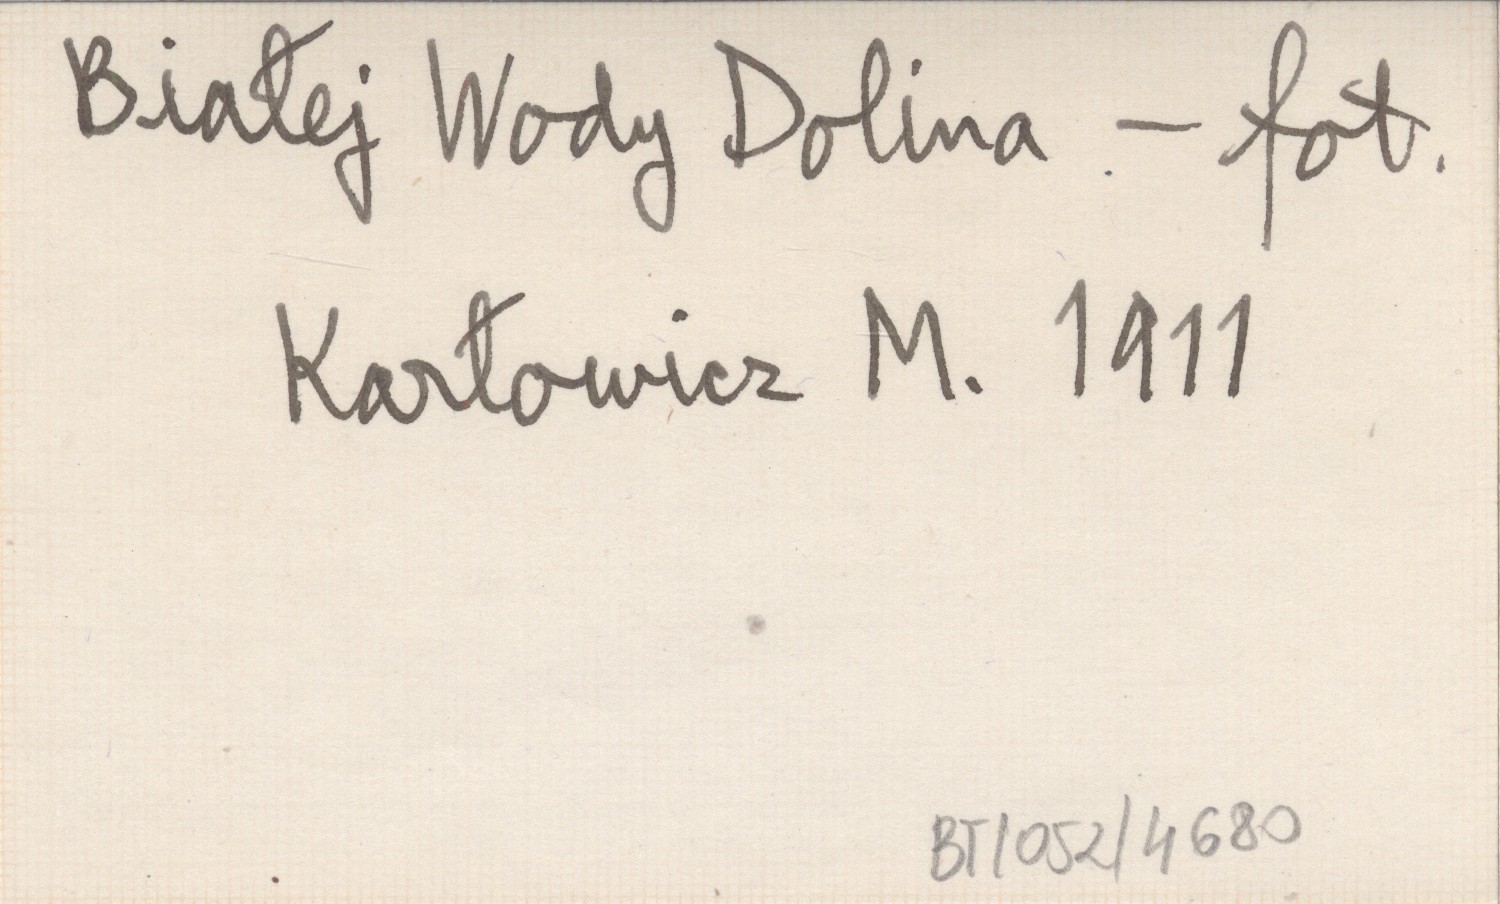 Białej Wody Dolina – fot.
Karłowicz M. 1911
BT/052/4680